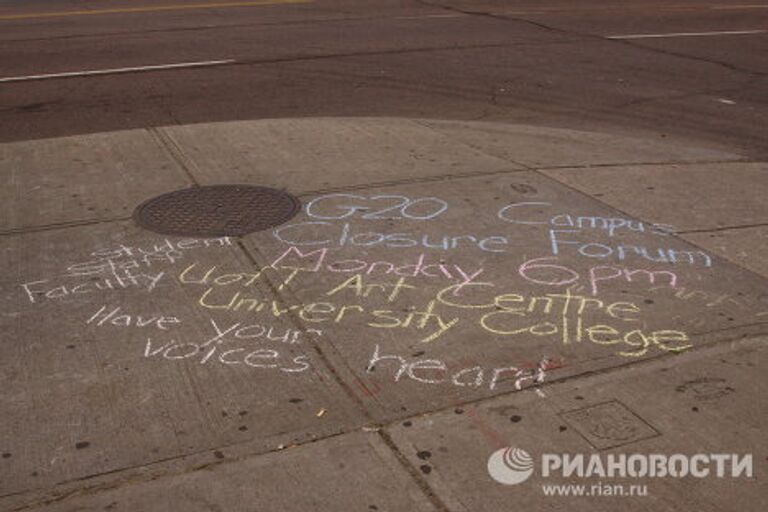 G20 Campus
Closure Forum
Monday 6pm
UofT Art Centre
University College
Student
Staff
Faculty
Have your
voices heard
РИАНОВОСТИ
www.rian.ru